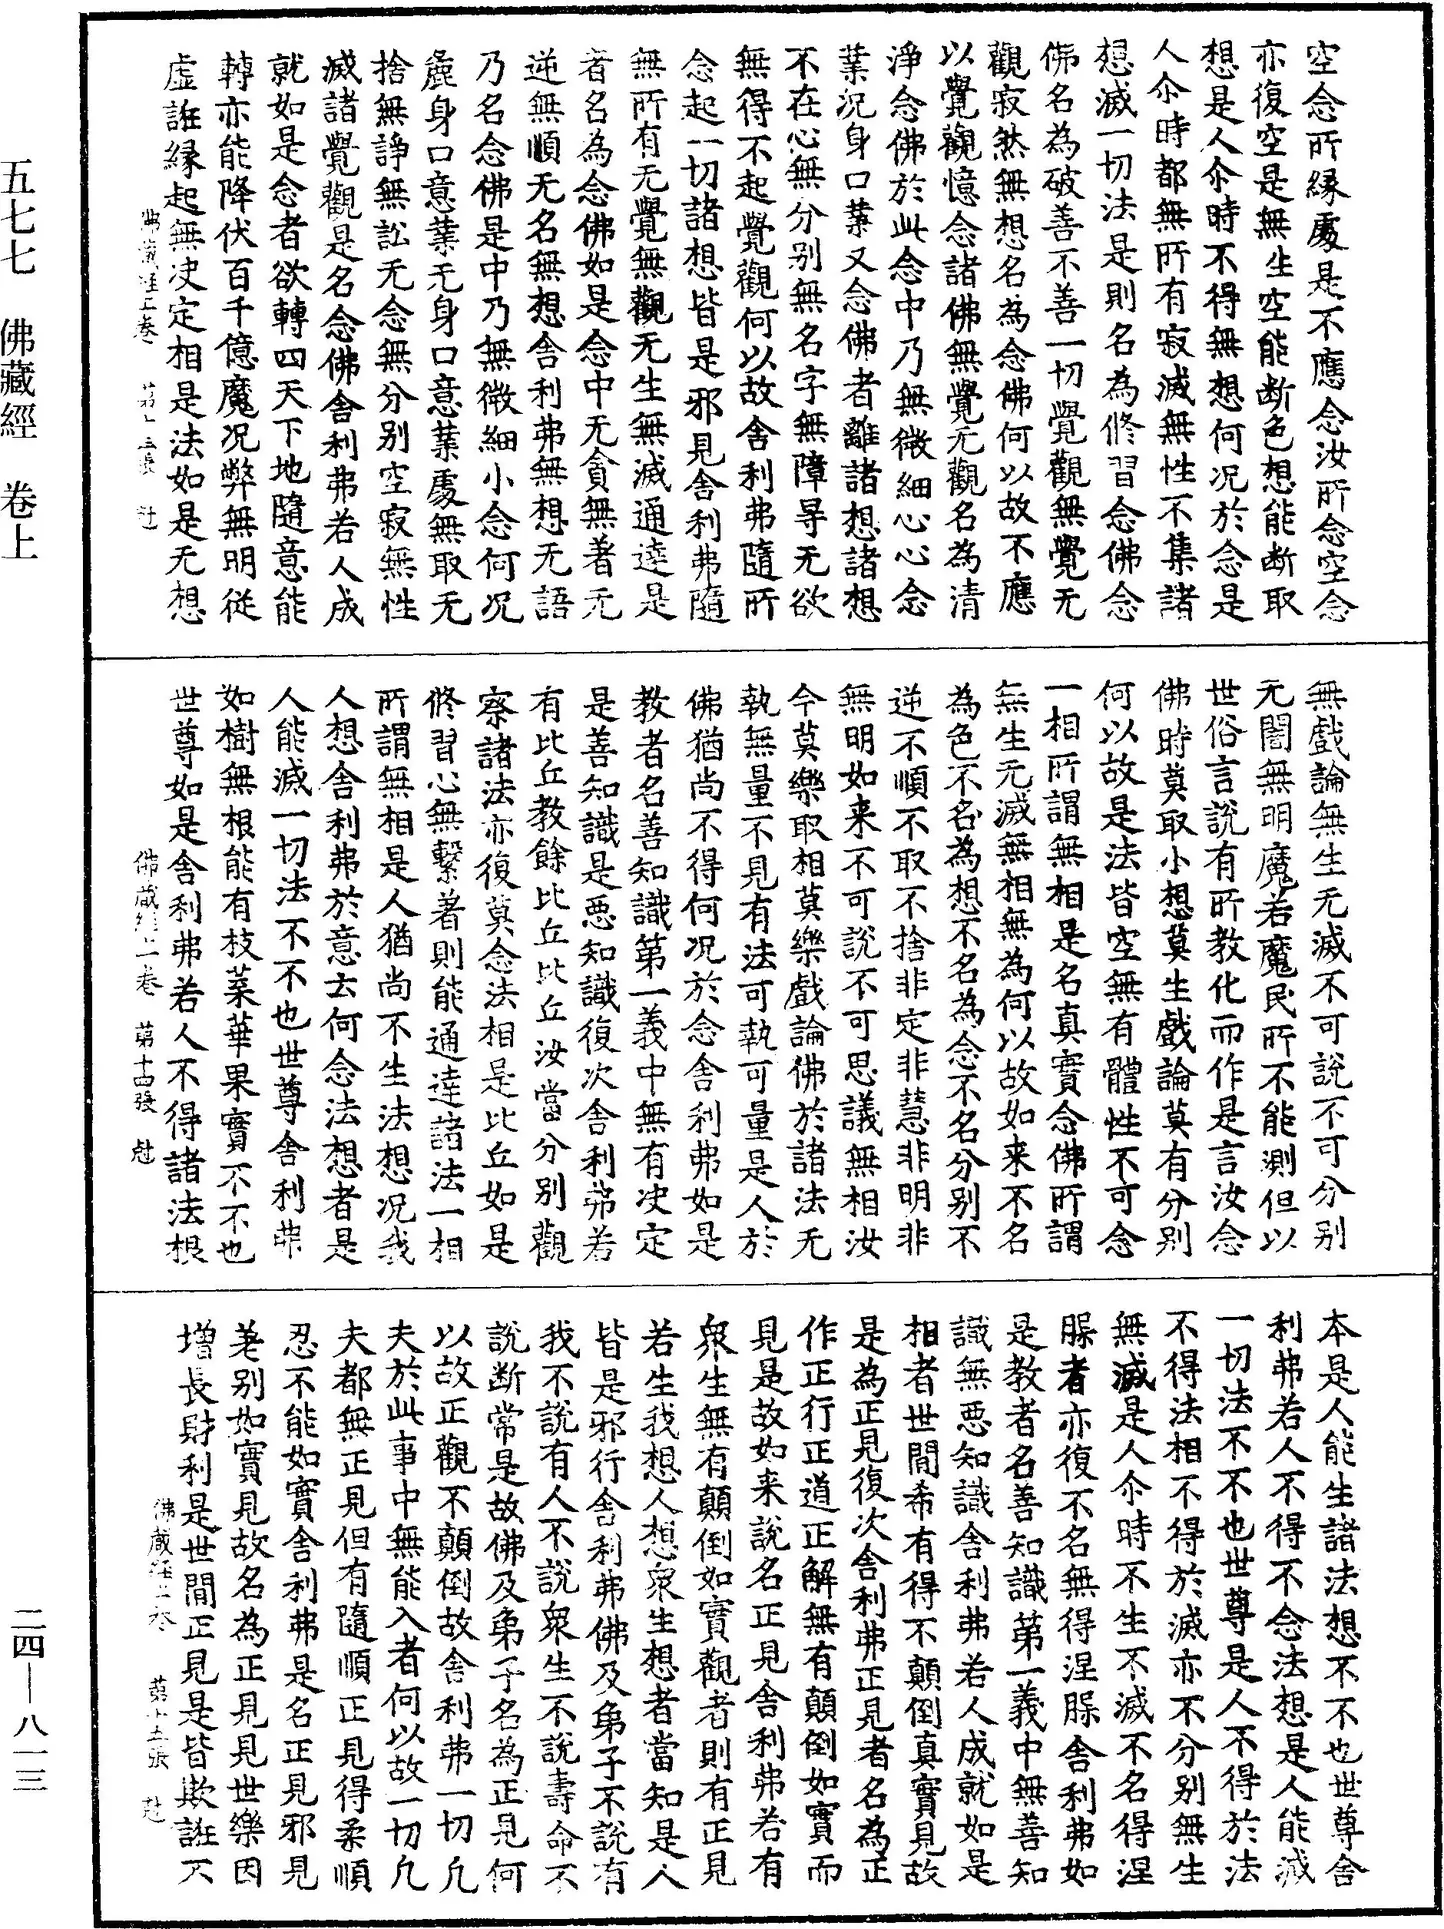 空念所縁處是不應念汝所念空念
亦復空是無生空能断色想能断取
想是人尒時不得無想何况於念是
人尒時都無所有寂滅無性不集諸
想滅一切法是則名為修習念佛念
佛名為破善不善一切覺觀無覺无
觀寂然無想名為念佛何以故不應
以覺觀憶念諸佛無覺无觀名為清
淨念佛於此念中乃無微細心心念
業況身口業又念佛者離諸想諸想
不在心無分别無名字無障㝵无欲
無得不起覺觀何以故舍利弗隨所
念起一切諸想皆是邪見舍利弗隨
無所有无覺無觀无生無滅通達是
者名為念佛如是念中无貪無著无
逆無順无名無想舍利弗無想无語
乃名念佛是中乃無微細小念何况
麁身口意業无身口意業處無取无
捨無諍無訟无念無分别空寂無性
滅諸覺觀是名念佛舍利弗若人成
就如是念者欲轉四天下地隨意能
轉亦能降伏百千億魔况弊無明従
虚誑縁起無决定相是法如是无想
佛藏經上卷 苐十三張 尅
無戲論無生无滅不可說不可分别
无闇無明魔若魔民所不能測但以
世俗言說有所教化而作是言汝念
佛時莫取小想莫生戲論莫有分别
何以故是法皆空無有體性不可念
一相所謂無相是名真實念佛所謂
無生无滅無相無為何以故如来不名
為色不名為想不名為念不名分别不
逆不順不取不捨非定非慧非明非
無明如来不可說不可思議無相汝
今莫樂取相莫樂戲論佛於諸法无
執無量不見有法可執可量是人於
佛猶尚不得何况於念舍利弗如是
教者名善知識第一義中無有决定
是善知識是惡知識復次舍利弗若
有比丘教餘比丘比丘汝當分别觀
察諸法亦復莫念法相是比丘如是
修習心無繫著則能通達諸法一相
所謂無相是人猶尚不生法想况我
人想舍利弗於意云何念法想者是
人能滅一切法不不也世尊舍利弗
如樹無根能有枝葉華果實不不也
世尊如是舍利弗若人不得諸法根
佛藏經上卷 苐十四張 尅
本是人能生諸法想不不也世尊舍
利弗若人不得不念法想是人能滅
一切法不不也世尊是人不得於法
不得法相不得於滅亦不分别無生
無滅是人尒時不生不滅不名得涅
䏶者亦復不名無得涅䏶舍利弗如
是教者名善知識第一義中無善知
識無惡知識舍利弗若人成就如是
相者世間希有得不顛倒真實見故
是為正見復次舍利弗正見者名為正
作正行正道正解無有顛倒如實而
見是故如来說名正見舍利弗若有
衆生無有顛倒如實觀者則有正見
若生我想人想衆生想者當知是人
皆是邪行舍利弗佛及弟子不說有
我不說有人不說衆生不說壽命不
說断常是故佛及弟子名為正見何
以故正觀不顛倒故舍利弗一切凡
夫於此事中無能入者何以故一切凡
夫都無正見但有隨順正見得柔順
忍不能如實舍利弗是名正見邪見
差别如實見故名為正見見世樂因
增長財利是世間正見是皆欺誑不
佛藏經上卷 苐十五張 尅
五七七 佛藏經 卷上
二四—八一三